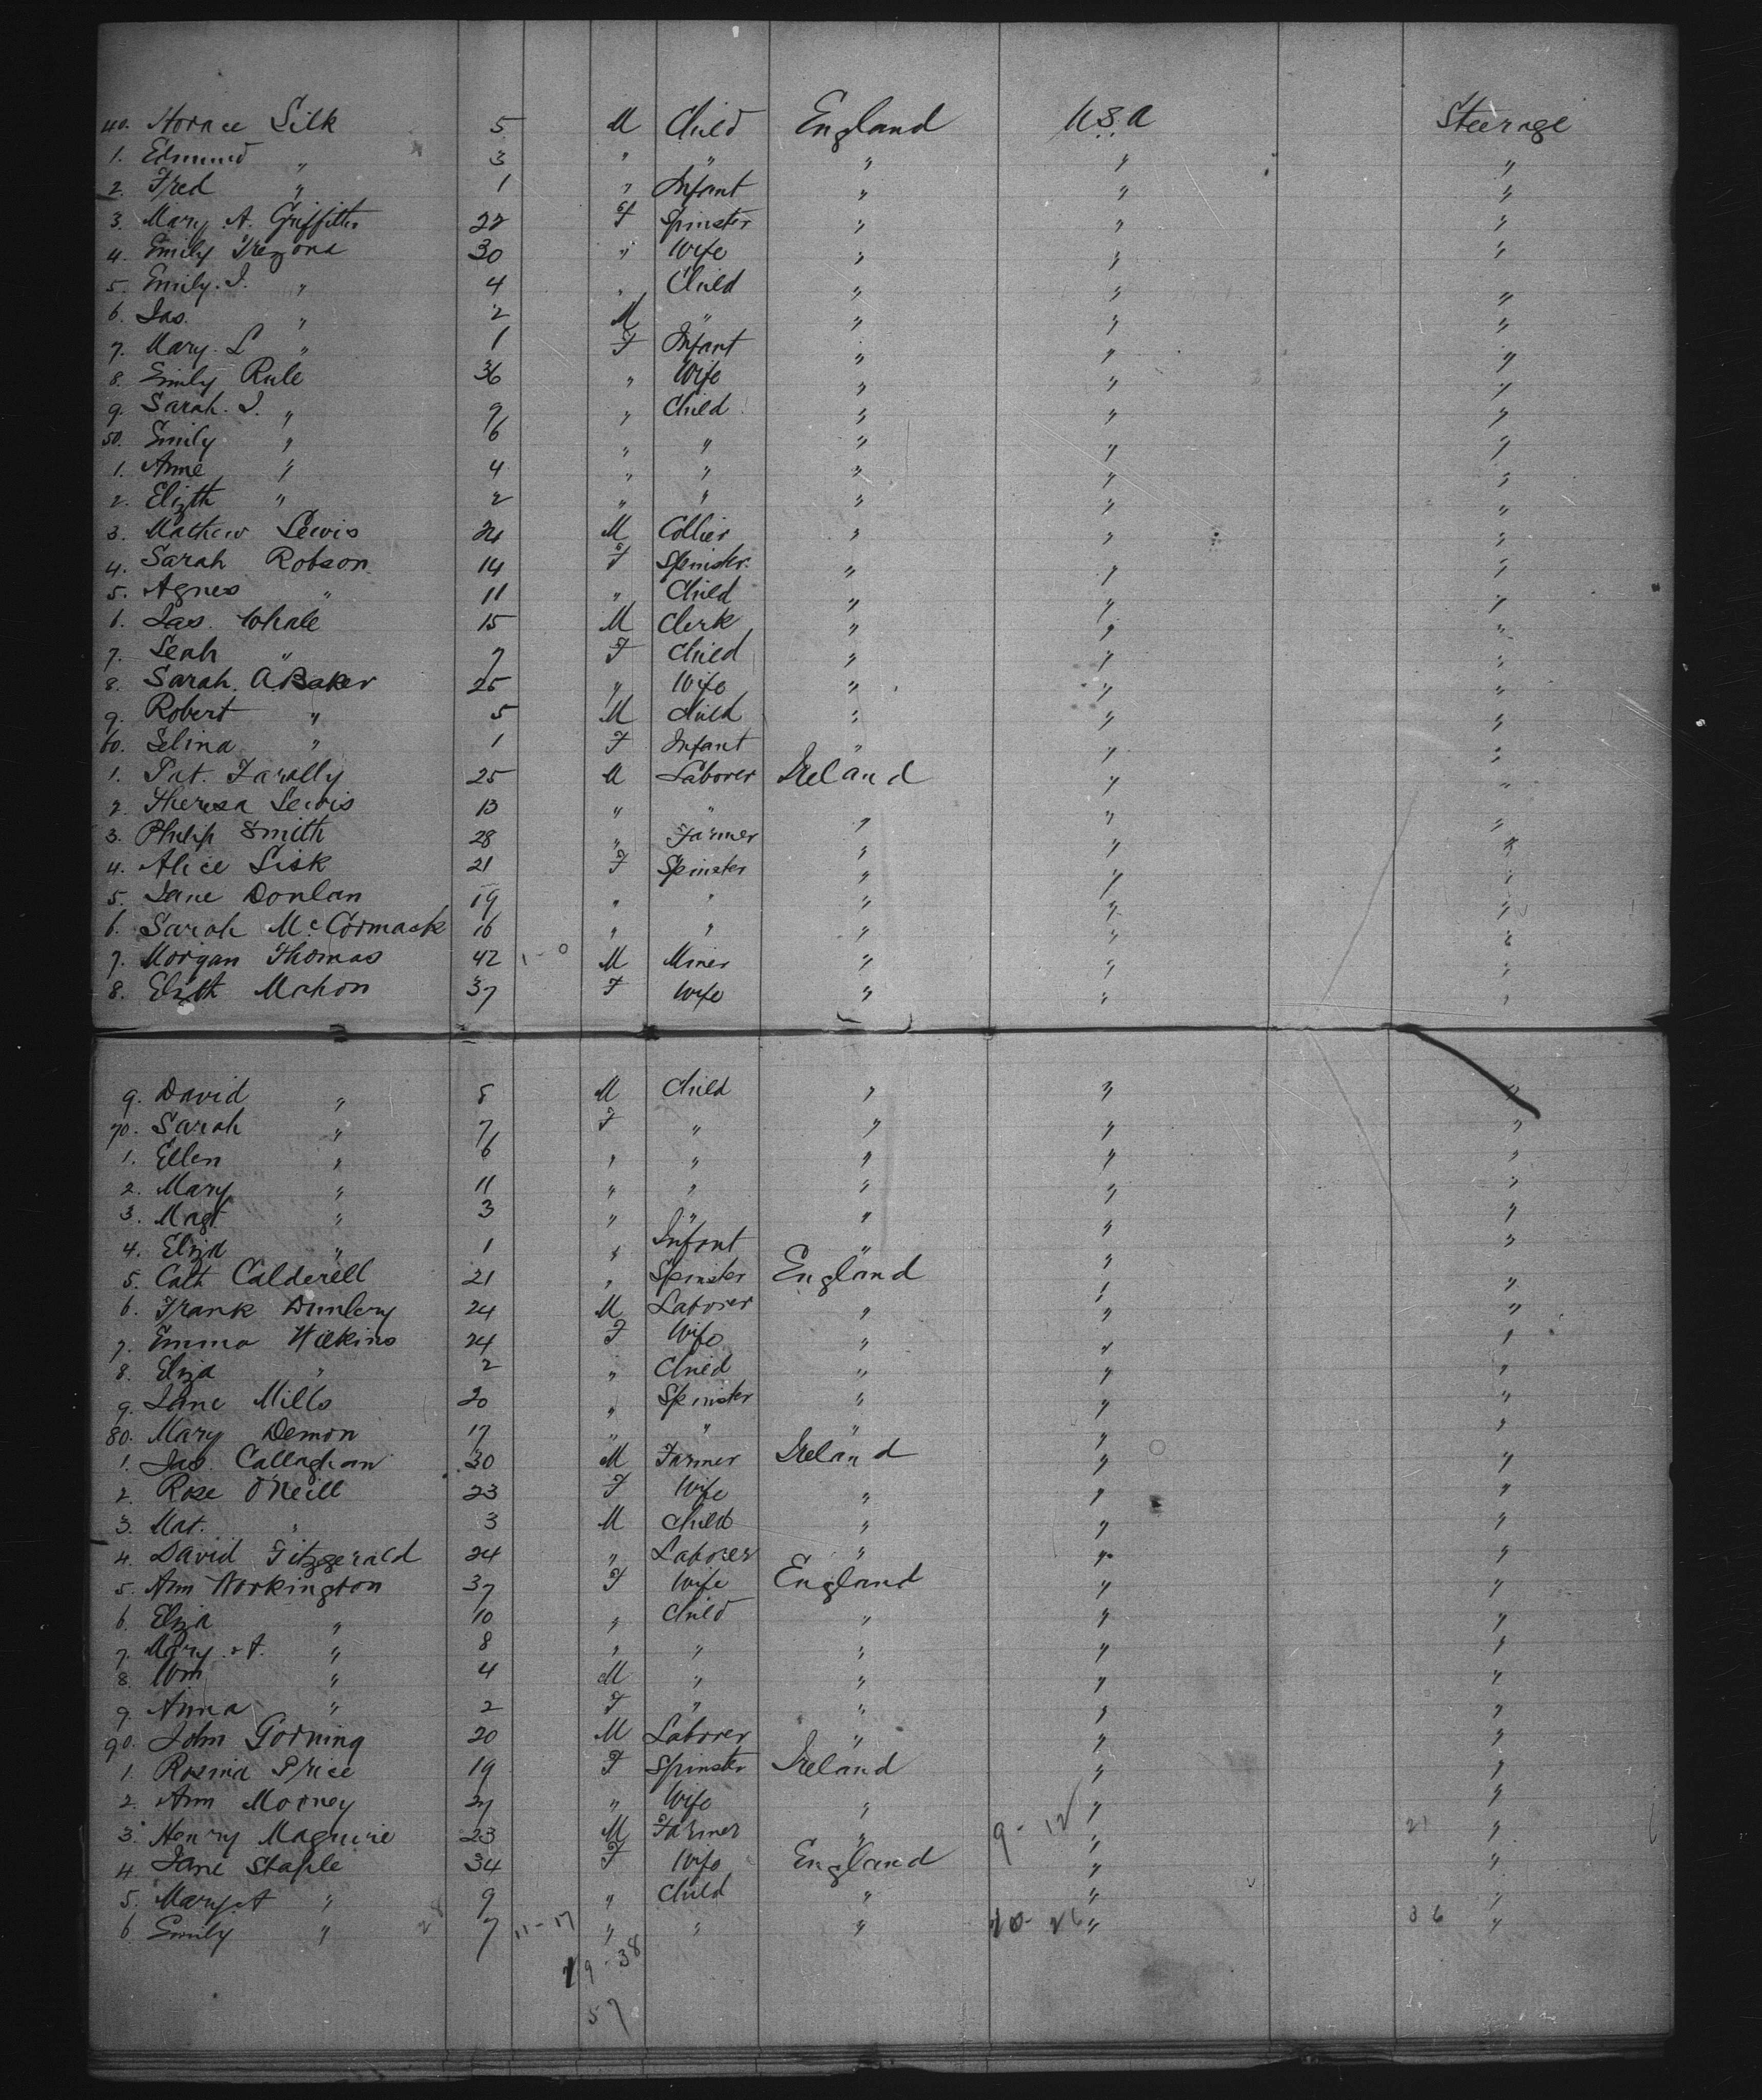 40. Horace Silk 5 M Child England U.S.A Steerage
1. Edmund " 3 " " " " "
2. Fred " 1 " Infant " " "
3. Mary. A. Griffiths 22 F Spinster " " "
4. Emily Trezona 30 " Wife " " "
5. Emily. J. " 4 " Child " " "
6. Jas. " 2 M " " " "
7. Mary. L " 1 F Infant " " "
8. Emily Rule 36 " Wife " " "
9. Sarah. J. " 9 " Child " " "
50. Emily " 6 " " " " "
1. Annie " 4 " " " " "
2. Elizth " 2 " " " " "
3. Mathew Lewis 24 M Collier " " "
4. Sarah Robson 14 F Spinster " " "
5. Agnes " 11 " Child " " "
6. Jas. Whale 15 M Clerk " " "
7. Leah " 7 F Child " " "
8. Sarah. A Baker 25 " Wife " " "
9. Robert " 5 M Child " " "
60. Selina " 1 F Infant " " "
1. Pat. Farolly 25 M Laborer Ireland " "
2. Theresa Lewis 13 " " " " "
3. Philip Smith 28 " Farmer " " "
4. Alice Sisk 21 F Spinster " " "
5. Jane Donlan 19 " " " " "
6. Sarah McCormack 16 " " " " "
7. Morgan Thomas 42 1 - 0 M Miner " " "
8. Elizth Mahon 37 F Wife " " "
9. David " 8 M Child " " "
70. Sarah " 7 F " " " "
1. Ellen " 6 " " " " "
2. Mary " 11 " " " " "
3. Magt " 3 " " " " "
4. Eliza " 1 " Infant " " "
5. Cath Calderell 21 " Spinster England " "
6. Frank Dunlevy 24 M Laborer " " "
7. Emma Wilkins 24 F Wife " " "
8. Eliza " 2 " Child " " "
9. Jane Mills 20 " Spinster " " "
80. Mary Demon 17 " " " " "
1. Jas. Callaghan 30 M Farmer Ireland " "
2. Rose O'Neill 23 F Wife " " "
3. Mat. " 3 M Child " " "
4. David Fitzgerald 24 " Laborer " " "
5. Ann Workington 37 F Wife England " "
6. Eliza " 10 " Child " " "
7. Mary. A. " 8 " " " " "
8. Wm " 4 M " " " "
9. Anna " 2 F " " " "
90. John Gorning 20 M Laborer " " "
1. Rosina Price 19 F Spinster Ireland " "
2. Ann Morney 27 " Wife " " "
3. Henry Maguire 23 M Farmer " 9 - 12 " 21 "
4. Jane Staple 34 F Wife England " "
5. Mary. A " 9 " Child " " "
6. Emily " 28 7 11-17 " " " 10 - 26 " 36 "
19 - 38
57